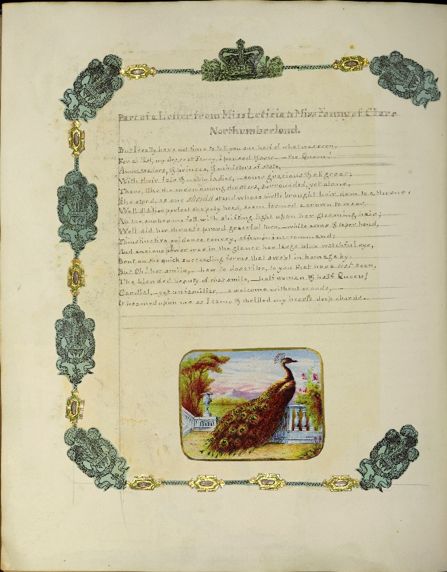 Part of a Letter from Miss Leticia to Miss Fanny of Clare
Northumberland.
But really have not time to tell you one half of what was seen,
For at last, my dearest Fanny, I passed before — the Queen!
Ambassadors, & princes, & ministers of state,
With their fair & noble ladies, — some gracious & all great;
There, like the moon among the stars, surrounded, yet alone,
She stood, as one should stand whose birth brought her to a throne.
Well did her perfect shapely head, seem formed a crown to wear,
As the sunbeams fell with shifting light upon her gleaming hair;
Well did her throat's proud graceful turn, — white arms & taper hand,
To instinctive guidance convey, of
And anxious power was in the glance her large blue watchful eye,
Bent on the quick succeeding forms that swept in homage by.
But Oh! her smile, — how to describe, to you that have not seen,
The blended beauty of that smile, — half woman & half Queen!
Cordial, — yet unfamiliar, — a welcome without words, —
It beamed upon me as I came, & thrilled my heart's deep chords.